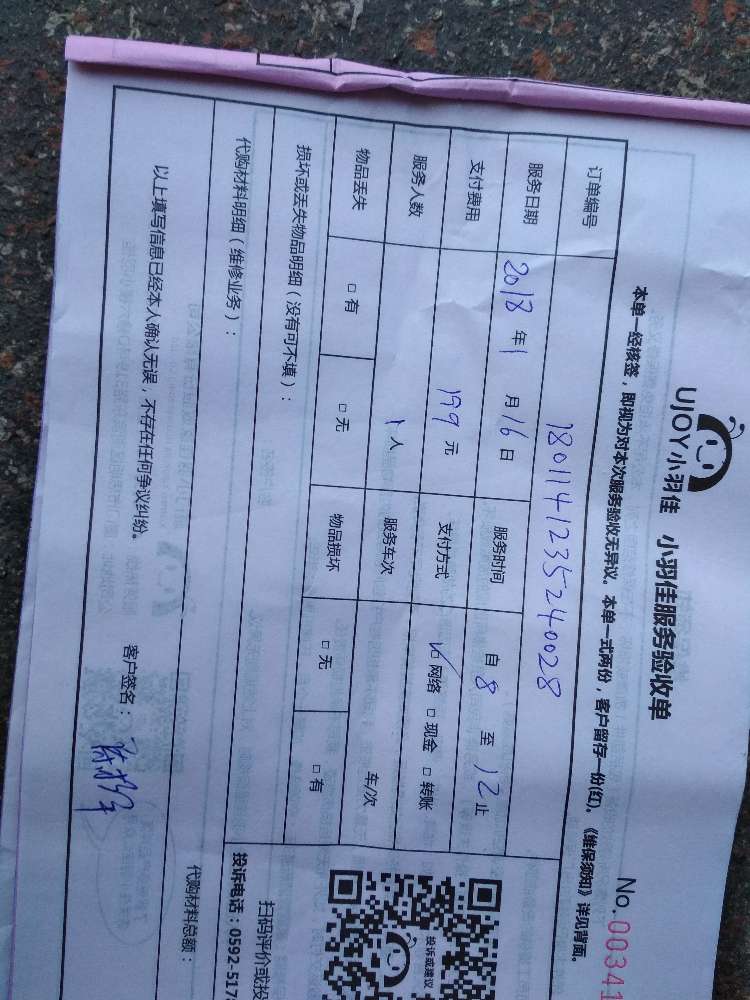 UJOY小羽佳 小羽佳服务验收单
No.00341
本单一经核签，即视为对本次服务验收无异议。本单一式两份，客户留存一份(红)。《维保须知》详见背面。
订单编号 1801141235240028
服务日期 2018年1月16日 服务时间 自8至12止
支付费用 199元 支付方式 ☑网络 □现金 □转账
服务人数 1人 服务车次 车/次
物品丢失 □有 □无 物品损坏 □无 □有
损坏或丢失物品明细（没有可不填）：
代购材料明细（维修业务）：
代购材料总额：
以上填写信息已经本人确认无误，不存在任何争议纠纷。 客户签名：
投诉或建议
扫码评价或投
投诉电话：0592-517